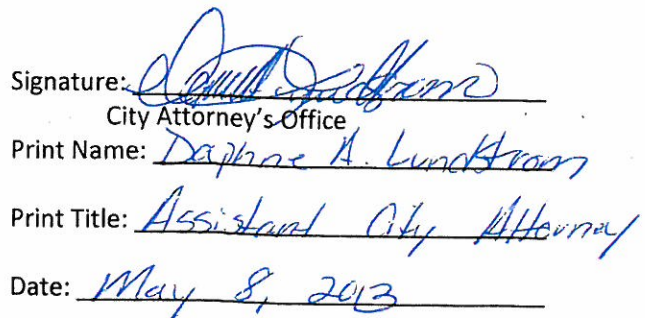 Signature:
City Attorney's Office
Print Name: Daphne A. Lundstrom
Print Title: Assistant City Attorney
Date: May 8, 2013